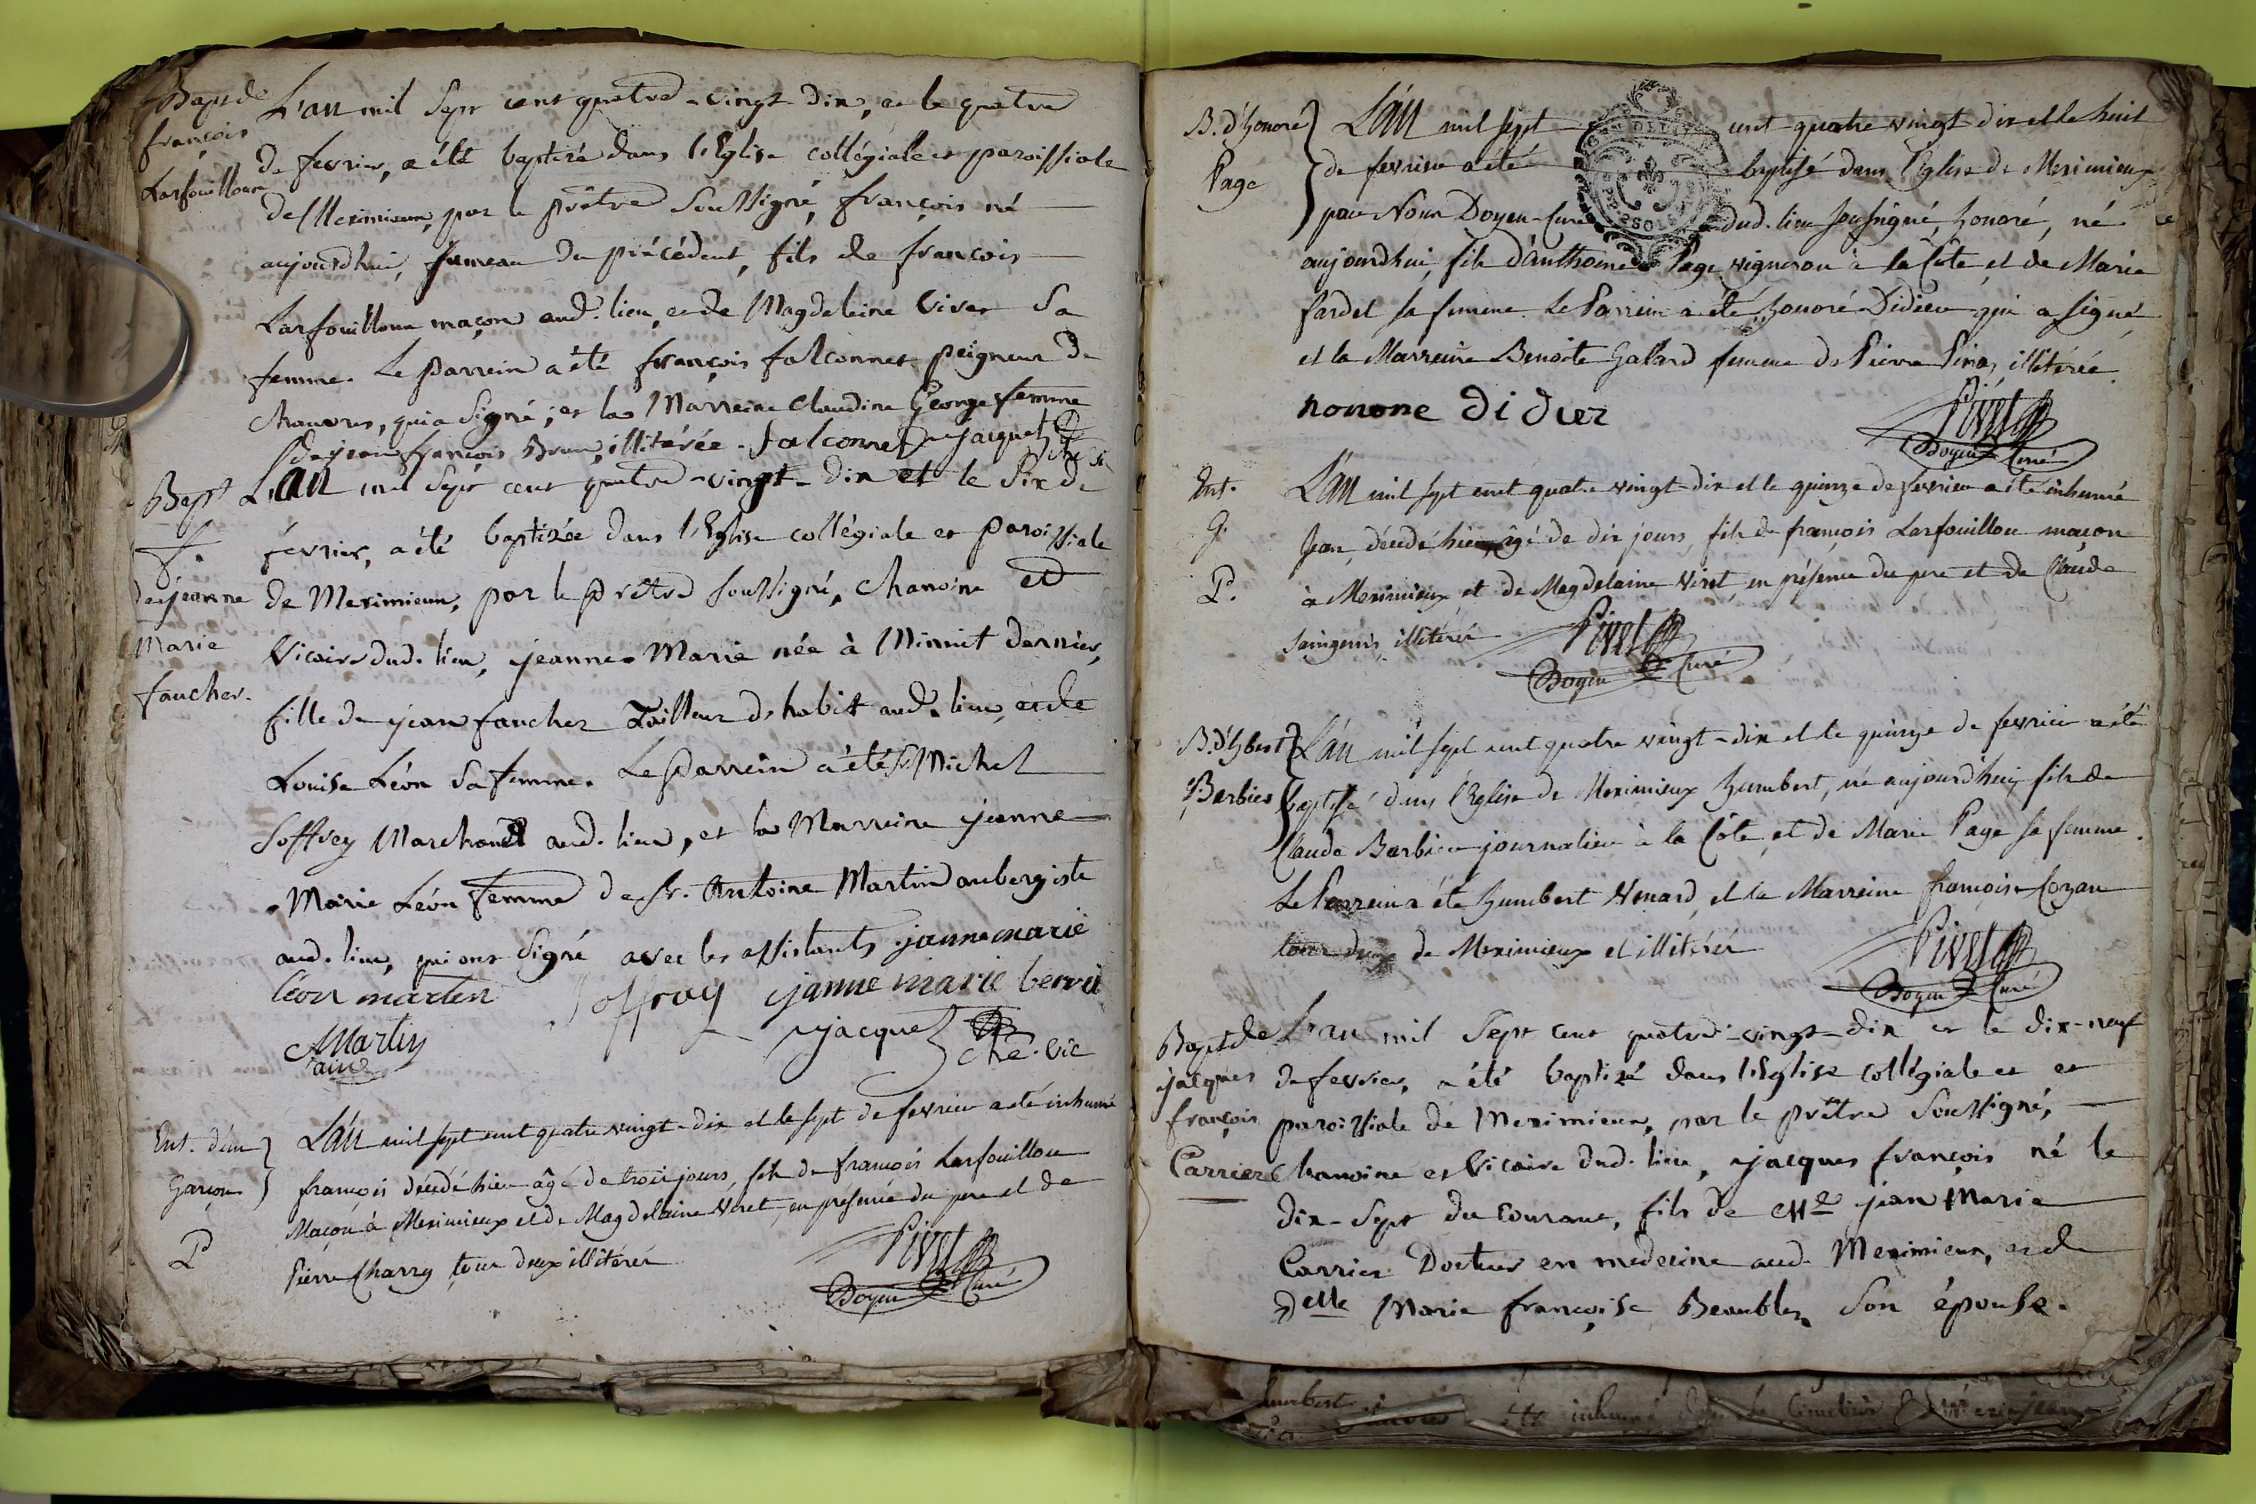 Bapt de
françois
Larfouilloux
L'an mil Sept cent quatre-vingt dix, et le quatre
de fevrier, a été baptizé dans l'Eglise collégiale et paroissiale
de Meximieux, par le prêtre Soussigné, françois né
aujourdhui, jumeau du précédent, fils de françois
Larfouilloux maçon aud. lieu, et de Magdeleine Viret Sa
femme. Le parrein a été françois falconnet peigneur de
chanvres, qui a Signé; et la Marreine Claudine George femme
de jean françois Brun, illitérée. falconnet jacquet
Bapt
f.
de jeanne
Marie
faucher.
L'an mil Sept cent quatre-vingt-dix et le Six de
fevrier, a été baptizée dans l'Eglise collégiale et paroissiale
de Meximieux, par le prêtre Soussigné, chanoine et
Vicaire dud. lieu, jeanne-Marie née à Minuit dernier,
fille de jean faucher Tailleur d'habit aud. lieu, et de
Louise Léon Sa femme. Le parrein a été Sr Michel
Soffrey Marchand aud. lieu, et la Marreine jeanne
Marie Léon femme de Sr. Antoine Martin aubergiste
aud. lieu, qui ont Signé avec les assistants janne marie
léon martin Soffray janne marie
jacquet che. vic
AMartin
Ent. d'un
Garçon
P
L'an mil sept cent quatre vingt-dix et le sept de fevrier a été inhumé
françois decédé hier âgé de trois jours, fils de françois Larfouilloux
Maçon à Meximieux et de Magdelaine Viret, en présence du pere et de
Pierre Charry tous deux illitérés
Pivet
Doyen Curé
B. d'honoré
Page
L'an mil sept cent quatre vingt dix et le huit
de fevrier a été baptisé dans l'Eglise de Meximieux
par Nous Doyen-Curé dud. lieu soussigné, honoré, né
aujourdhui, fils d'anthoine Page vigneron à la Côte et de Marie
fardel sa femme. Le Parrein a été honoré Didier qui a signé
et la Marreine Benoite Galland femme de Pierre illitérée
honore didier
Pivet
Doyen Curé
Ent.
G.
P.
L'an mil sept cent quatre vingt-dix et le quinze de fevrier a été inhumé
Jean, decédé hier, âgé de dix jours, fils de françois Larfouilloux maçon
à Meximieux et de Magdelaine Viret, en présence du pere et de Claude
illitérés
Pivet
Doyen Curé
B. d'hbert
Barbier
L'an mil sept cent quatre vingt-dix et le quinze de fevrier a été
baptisé dans l'Eglise de Meximieux humbert, né aujourd'hui, fils de
Claude Barbier journalier à la Côte, et de Marie Page sa femme.
Le Parrein a été humbert Henard, et la Marreine françoise Cozan
tous deux de Meximieux et illitérés
Pivet
Doyen Curé
Bapt de
jacques
françois
Carrier
L'an mil Sept cent quatre-vingt-dix et le dix-neuf
de fevrier, a été baptizé dans l'Eglise collégiale et et
paroissiale de Meximieux, par le prêtre Soussigné,
Chanoine et Vicaire dud. lieu, jacques françois né le
dix-Sept du courant, fils de Mre jean Marie
Carrier Docteur en medecine aud. Meximieux, et de
Delle Marie françoise Beaublez Son épouse.